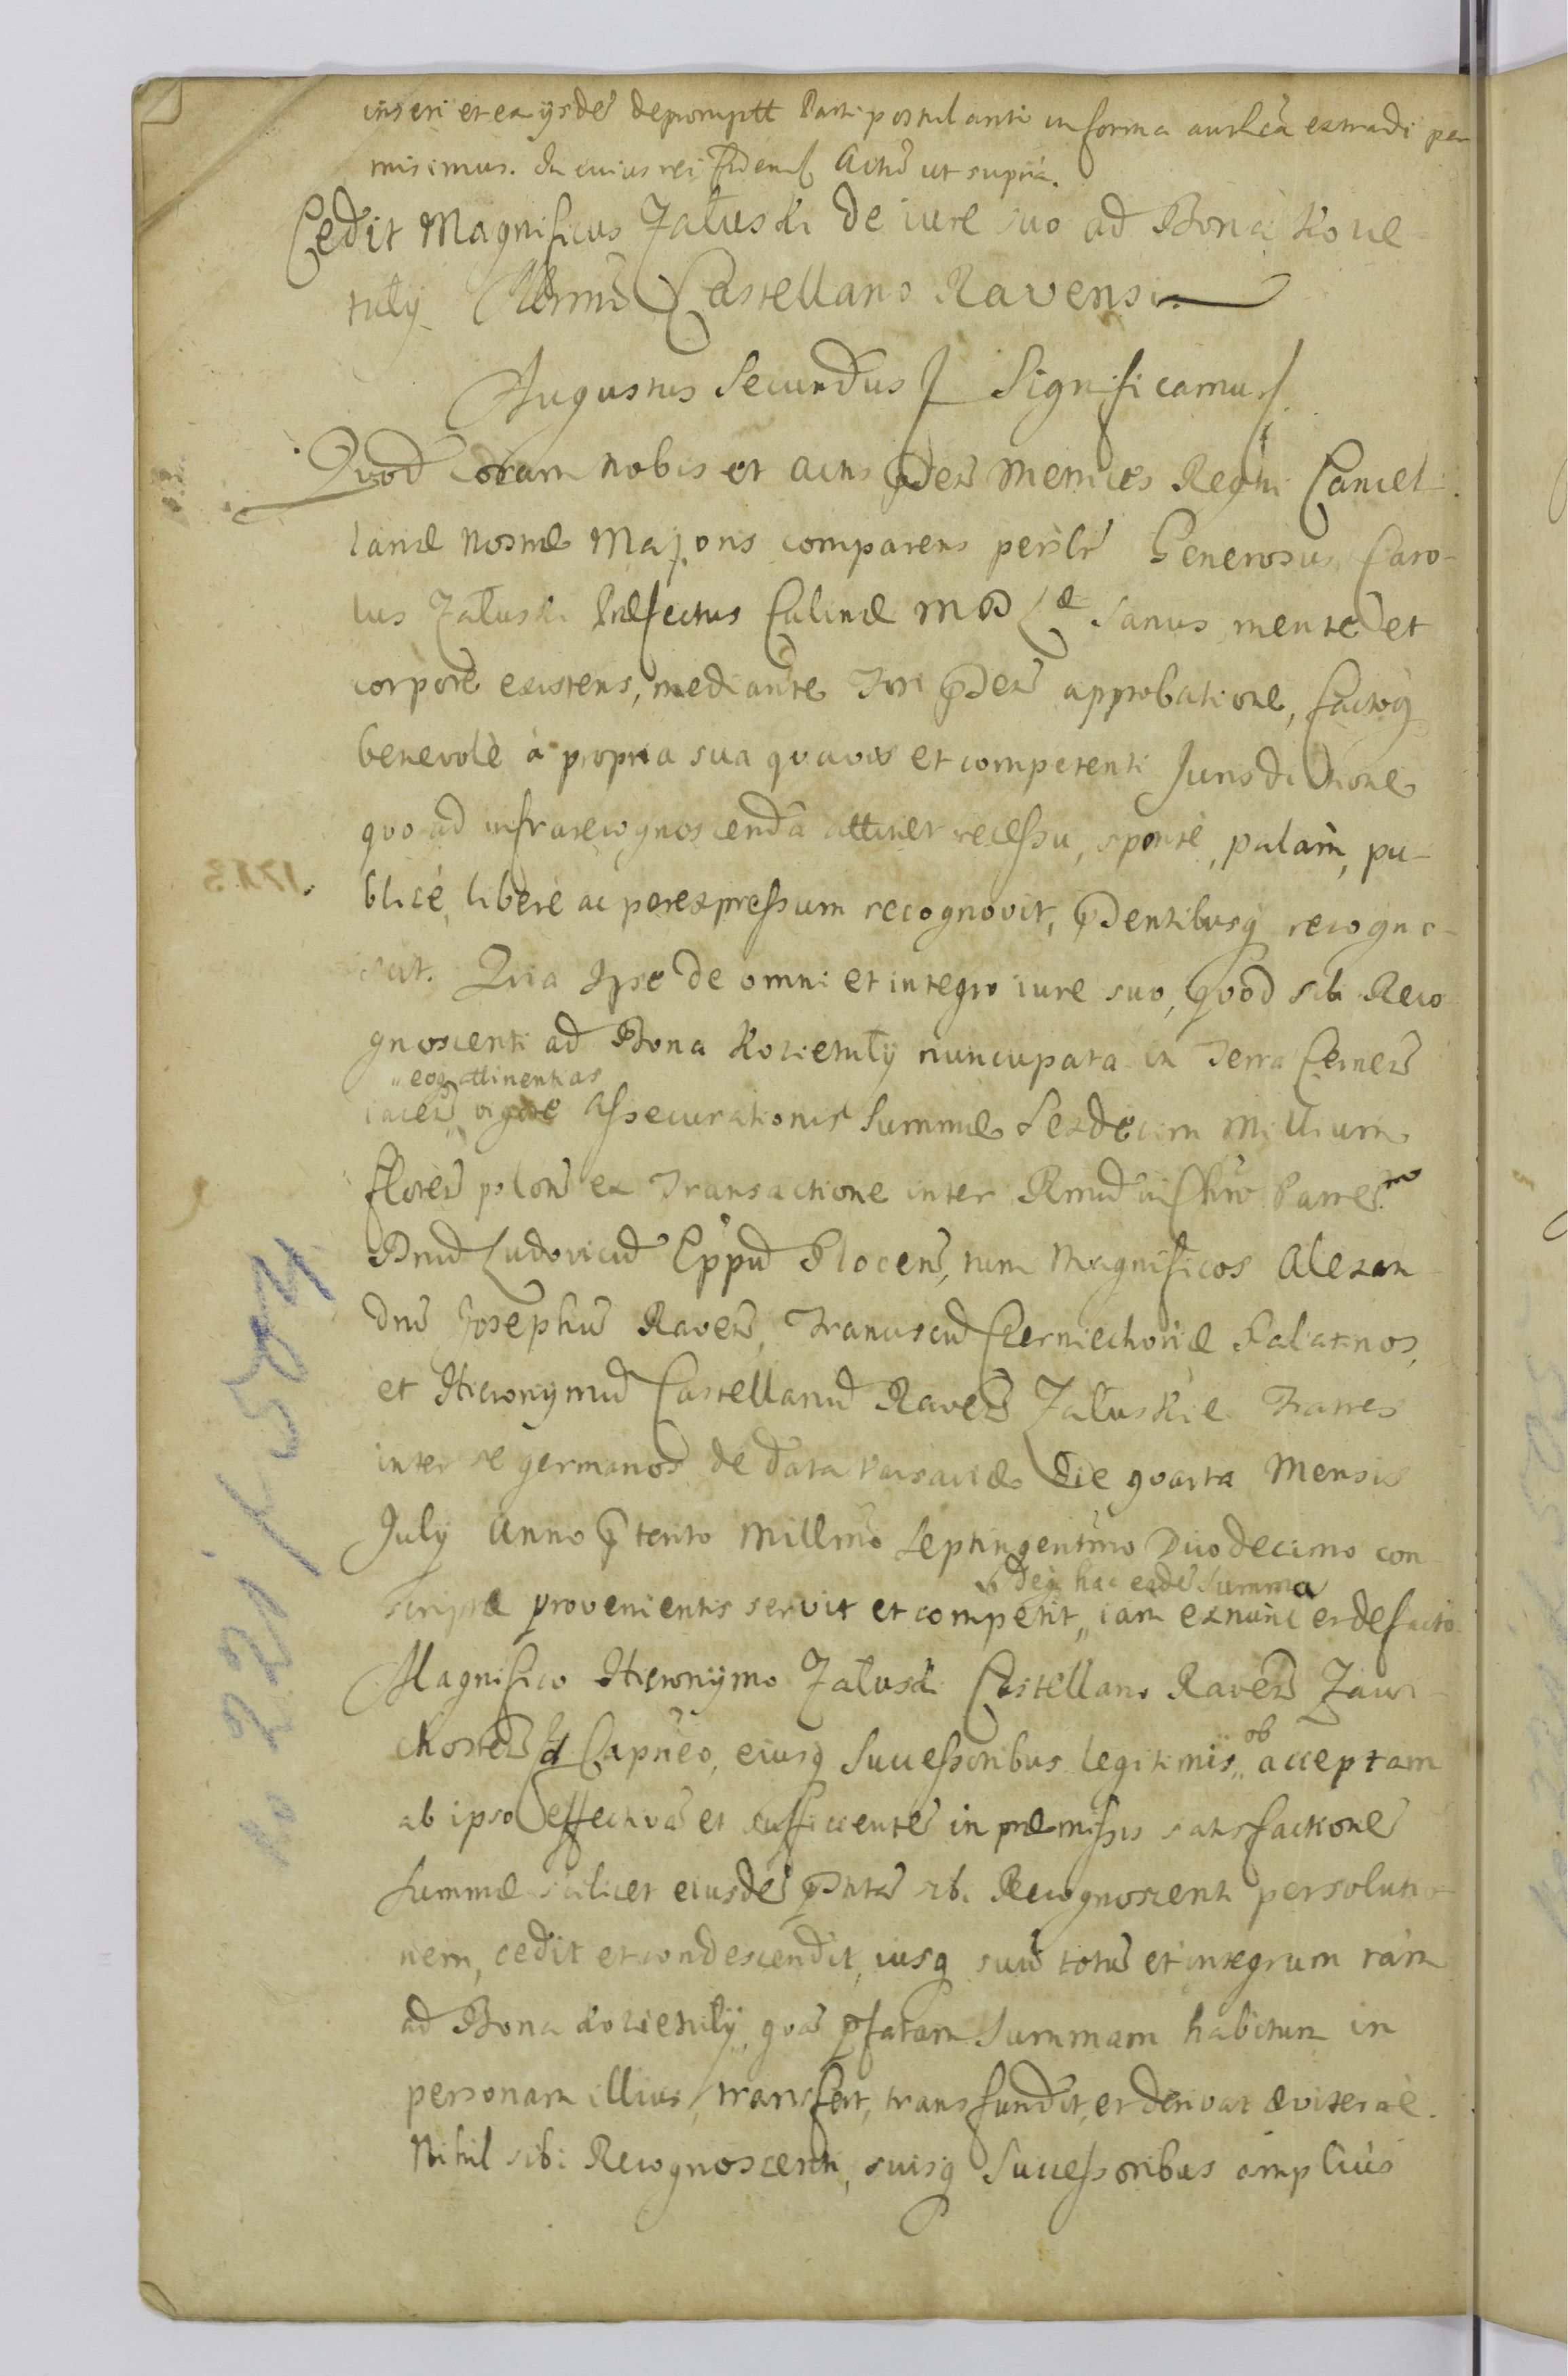 inseri et ex ijsdē depromptt Parti postulanti in forma authēa extradi per
misimus. In cuius rei fidem Actū ut supra.
Cedit Magnificus Załuski de iure suo ad Bona Kozie-
tuły Castellano Ravensi
Augustus Secundus Significamus
Quod coram nobis et actis pñtibus Metrices Regni Cancel-
lariæ nostræ Majoris comparens perillr̃ Generosus Caro-
lus Załuski Præfectus Culinæ M D L æ Sanus mente et
corpore existens, mediante approbatione, factoq
benevolè à propria sua quavis et competenti Jurisdictione
quo ad infrarecognoscenda attinet recessu, sponte, palam, pu-
blicè, liberè ac per expressum recognovit, pñdentibusq recogno-
scit. Quia Ipse de omni et integro iure suo, quod sibi Reco-
gnoscenti ad Bona Kozietuły nuncupata in Terra Cernen
eoq attinentias
iacen vigore assecurationis Summæ Sexdecim Millium
floren polon ex Transactione inter Rmū in Chro Patrem
Dnū Ludovicū Eppū Plocen, tum Magnificos Alexan
drū Josephū Raven, Franciscū Czerniechoviæ Palatinos,
et Hieronymū Castellanū Raven Załuskie Fratres
inter se germanos de data Varsaviæ die quarta Mensis
July Anno pterito Millmo Septingentmo Duodecimo con
hac eadē summa
scriptæ provenientis servit et competit, iam exnunc et defacto
Magnifico Hieronymo Załuski Castellano Raven Zawi-
chosten Capneo, eiusq Successoribus legitimis, ob acceptam
ab ipso effectivā et sufficientē in præmissis satisfactionē
Summæ scilicet eiusdē sibi Recognoscenti persolutio-
nem, cedit et condescendit, iusq suū totū et integrum tam
ad Bona Kozietuły, quā pfatam Summam habitum in
personam illius, transfert, transfundit, et derivat æviternè.
Nihil sibi Recognoscenti, suisq Successoribus amplius